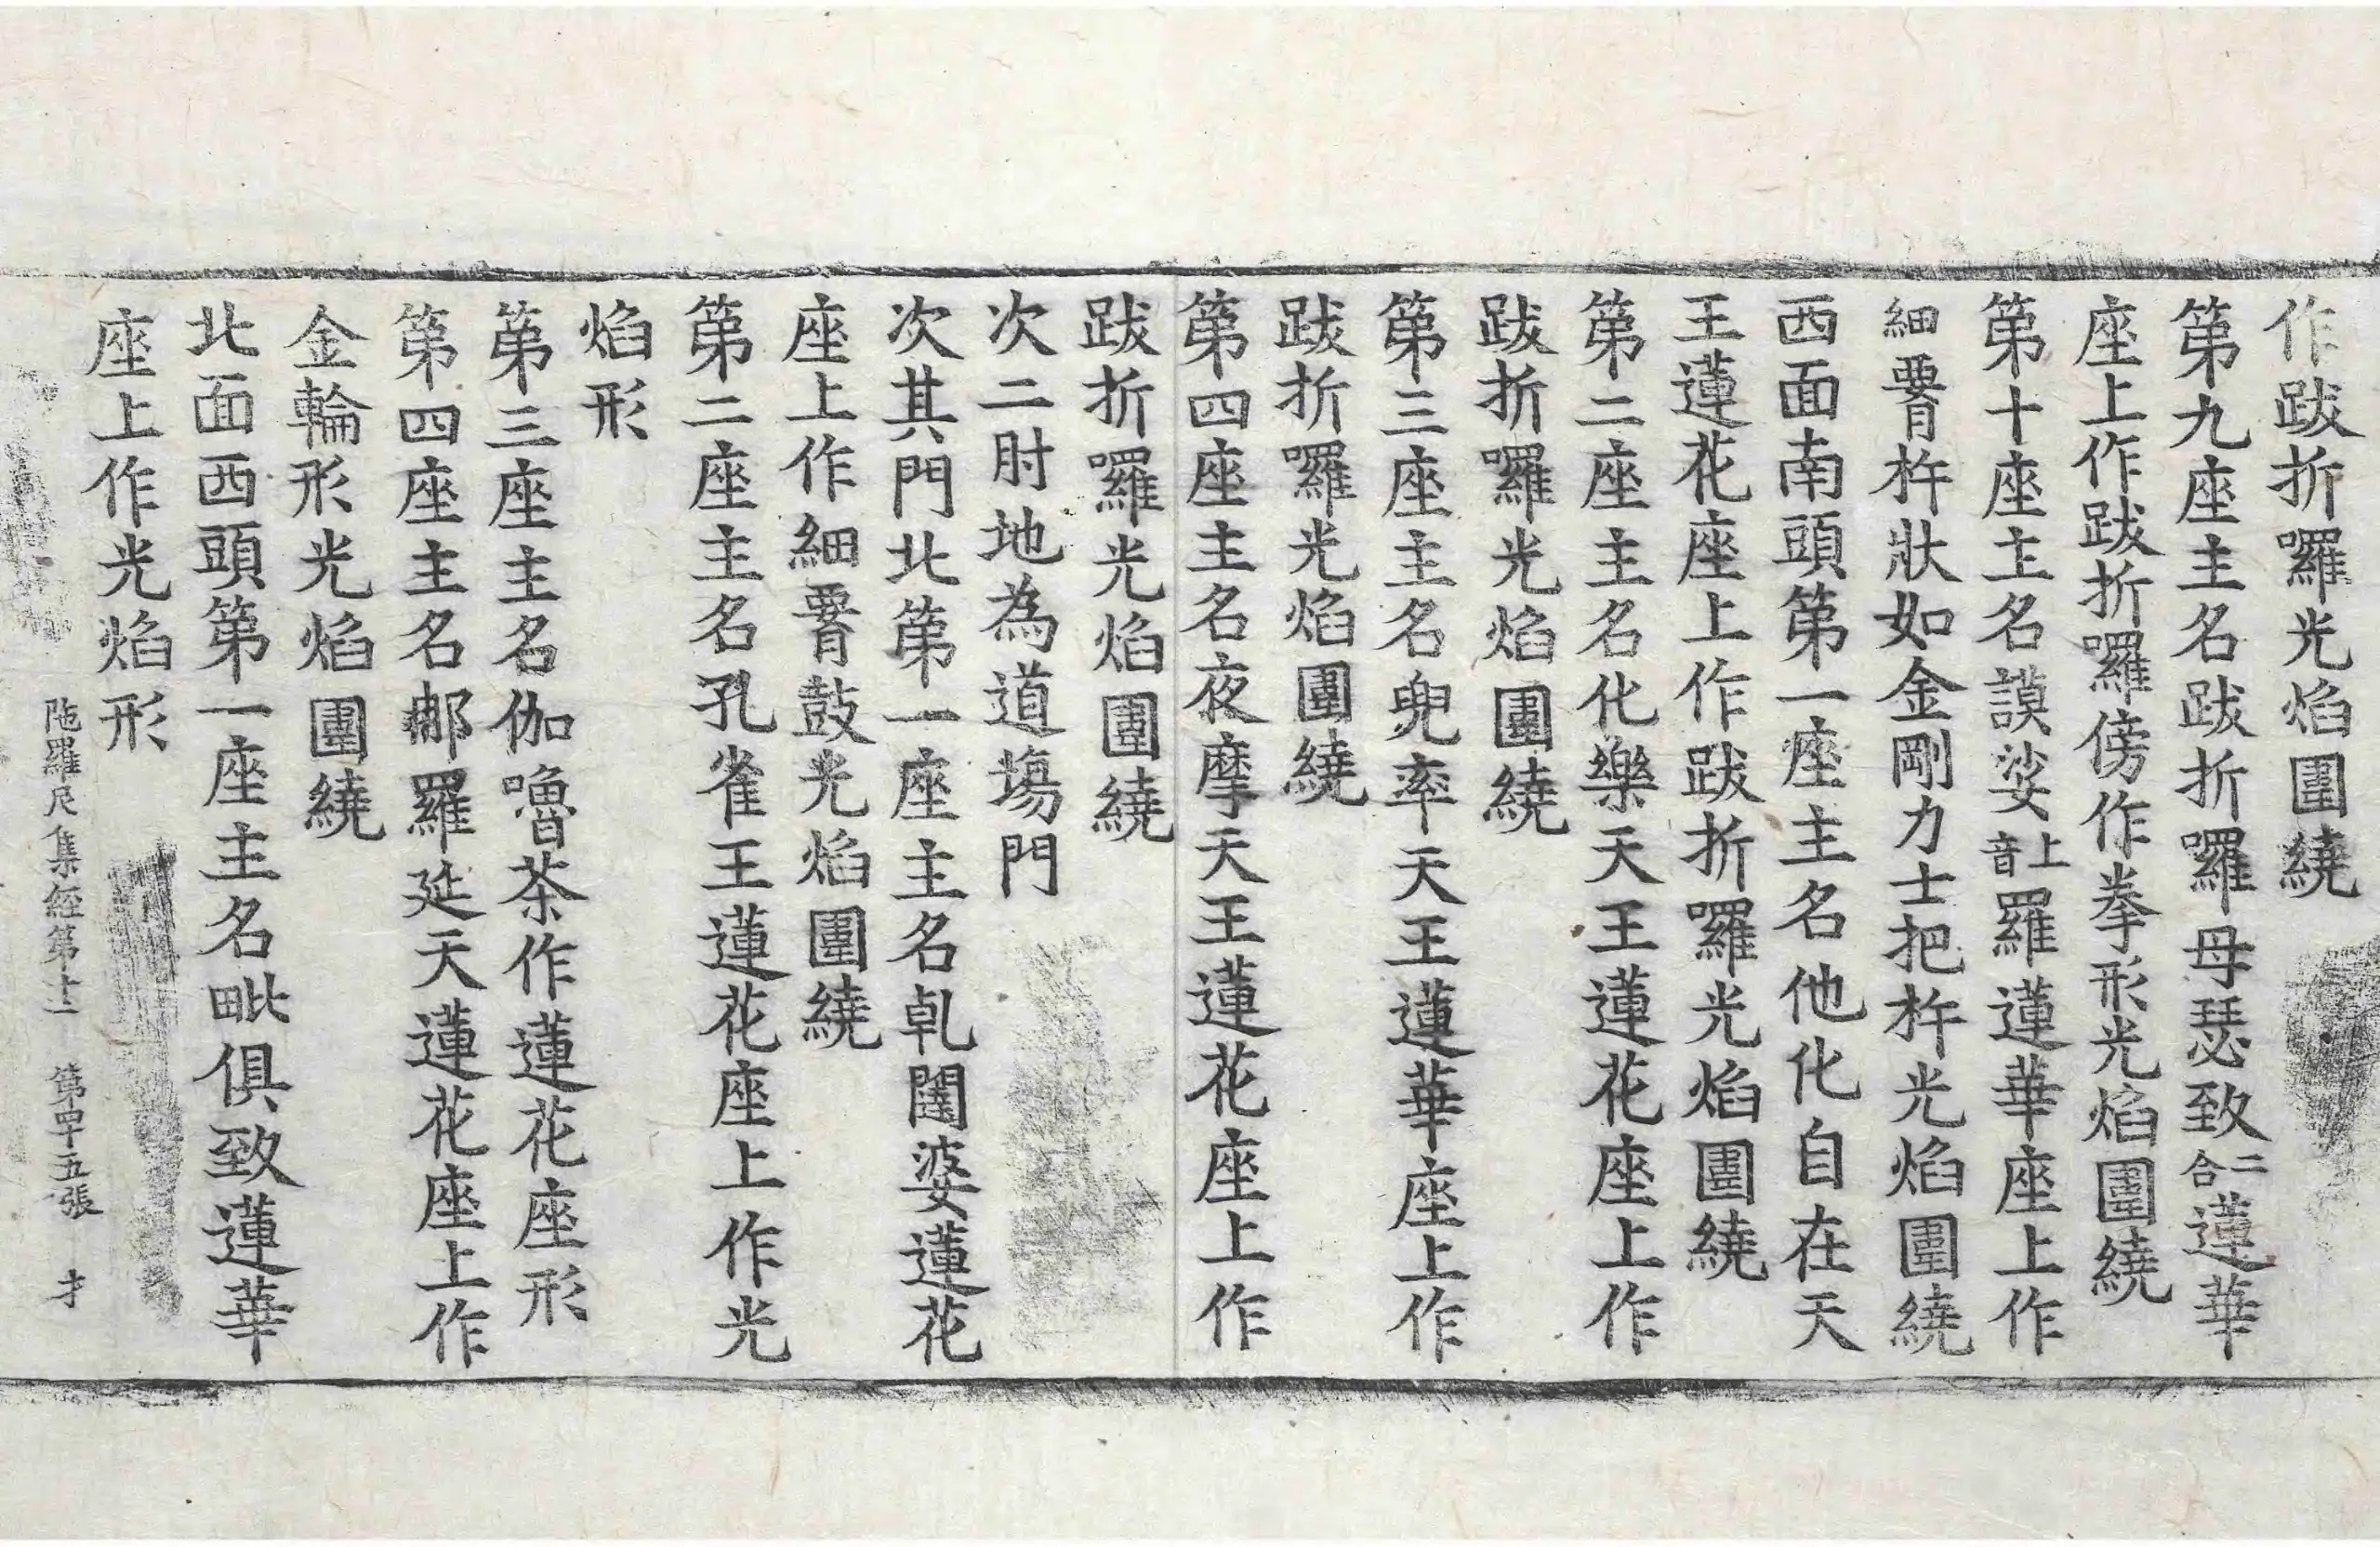 作跋折囉光焰圍繞
第九座主名跋折囉母瑟致二合蓮華
座上作跋折囉傍作拳形光焰圍繞
第十座主名謨娑上音羅蓮華座上作
細署杵狀如金剛力士把杵光焰圍繞
西面南頭第一座主名他化自在天
王蓮花座上作跋折囉光焰圍繞
第二座主名化樂天王蓮花座上作
跋折囉光焰圍繞
第三座主名兜率天王蓮華座上作
跋折囉光焰圍繞
第四座主名夜摩天王蓮花座上作
跋折囉光焰圍繞
次二肘地為道場門
次其門北第一座主名乹闥婆蓮花
座上作細署鼓光焰圍繞
第二座主名孔雀王蓮花座上作光
焰形
第三座主名伽嚕茶作蓮花座形
第四座主名那羅延天蓮花座上作
金輪形光焰圍繞
北面西頭第一座主名毗俱致蓮華
座上作光焰形
陁羅尼集經第十二 第四十五張 才